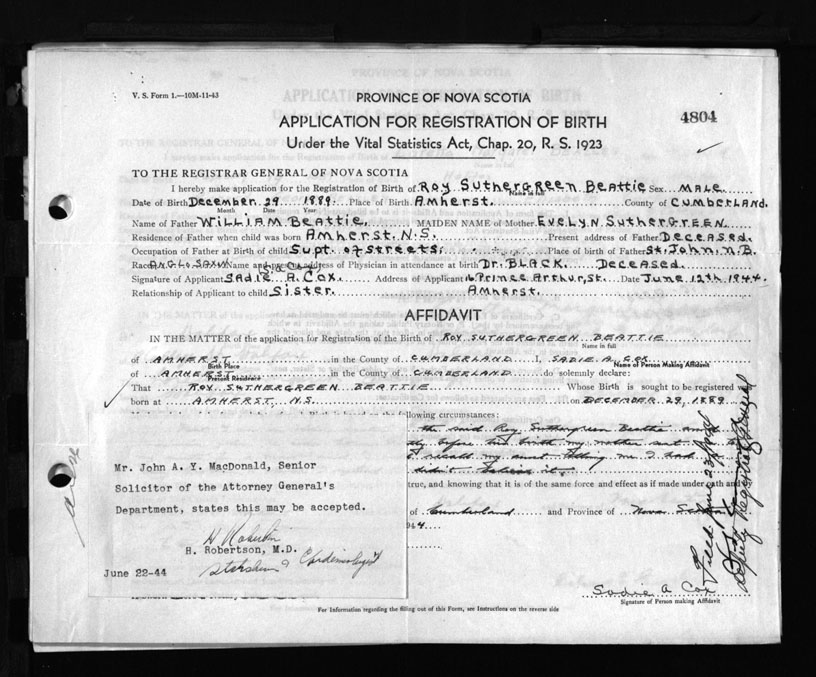 V. S. Form 1.—10M-11-43
PROVINCE OF NOVA SCOTIA
4804
APPLICATION FOR REGISTRATION OF BIRTH
Under the Vital Statistics Act, Chap. 20, R. S. 1923
TO THE REGISTRAR GENERAL OF NOVA SCOTIA
I hereby make application for the Registration of Birth of Roy Suthergreen Beattie Sex MALE
Name in full
Date of Birth December 29 1889 Place of Birth Amherst. County of Cumberland.
Month Date Year
Name of Father William Beattie. MAIDEN NAME of Mother Evelyn Suthergreen
Residence of Father when child was born Amherst. N.S. Present address of Father Deceased.
Occupation of Father at Birth of child Supt of streets. Place of birth of Father St. John. N.B.
Race Anglo. Saxon Name and present address of Physician in attendance at birth Dr. Black Deceased.
Signature of Applicant Sadie A. Cox. Address of Applicant 16 Prince Arthur, St. Date June 12th 1944.
Relationship of Applicant to child Sister. Amherst.
AFFIDAVIT
IN THE MATTER of the application for Registration of the Birth of ROY SUTHERGREEN BEATTIE
Name in full
of AMHERST in the County of CUMBERLAND I, SADIE. A. COX
Birth Place Name of Person Making Affidavit
of AMHERST in the County of CUMBERLAND do solemnly declare:
Present Residence
That ROY SUTHERGREEN BEATTIE Whose Birth is sought to be registered was
born at AMHERST, N.S. on DECEMBER 29, 1889
following circumstances:
the said Roy Suthergreen Beattie and
before his birth my mother sent
recall my aunt telling me I had
didn't believe it.
true, and knowing that it is of the same force and effect as if made under oath and
of Cumberland and Province of Nova Scotia
Mr. John A. Y. MacDonald, Senior
Solicitor of the Attorney General's
Department, states this may be accepted.
H Robertson
H. Robertson, M.D.
Statistician & Epidemiologist
June 22-44
Filed June 23/1944
Deputy Registrar General
Sadie A Cox
Signature of Person making Affidavit
For Information regarding the filling out of this Form, see Instructions on the reverse side